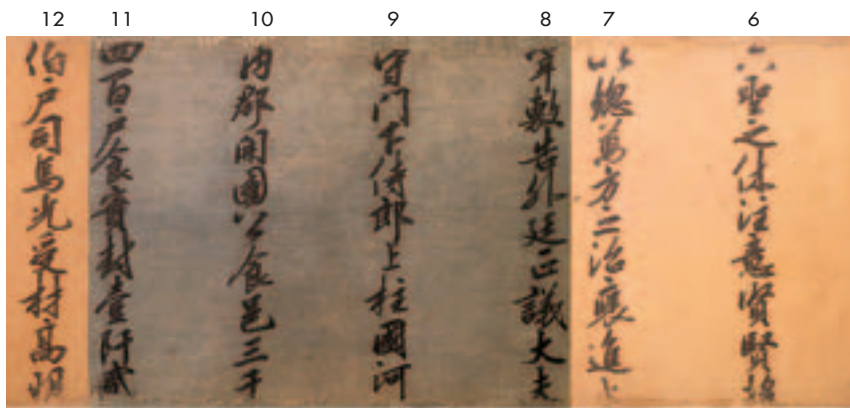 12 11 10 9 8 7 6
六聖之休注意賢
以總萬方之治褒進上
宰敷告外廷正議大夫
守門下侍郎上柱國河
內郡開國公食邑三千
四百戶食實封壹阡貳
伯戶司馬光受材高明